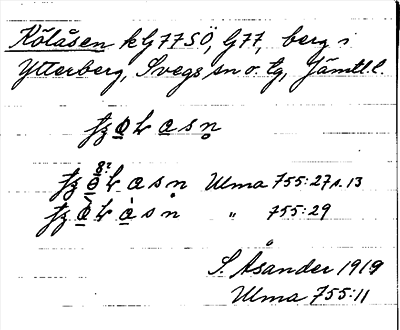 Kölåsen kG77SÖ, G77, berg i
Ytterberg, Svegs sn o. tg, Jämtl.l.
8?
Ulma 755:27 s. 13
" 755:29
S. Åsander 1919
Ulma 755:11